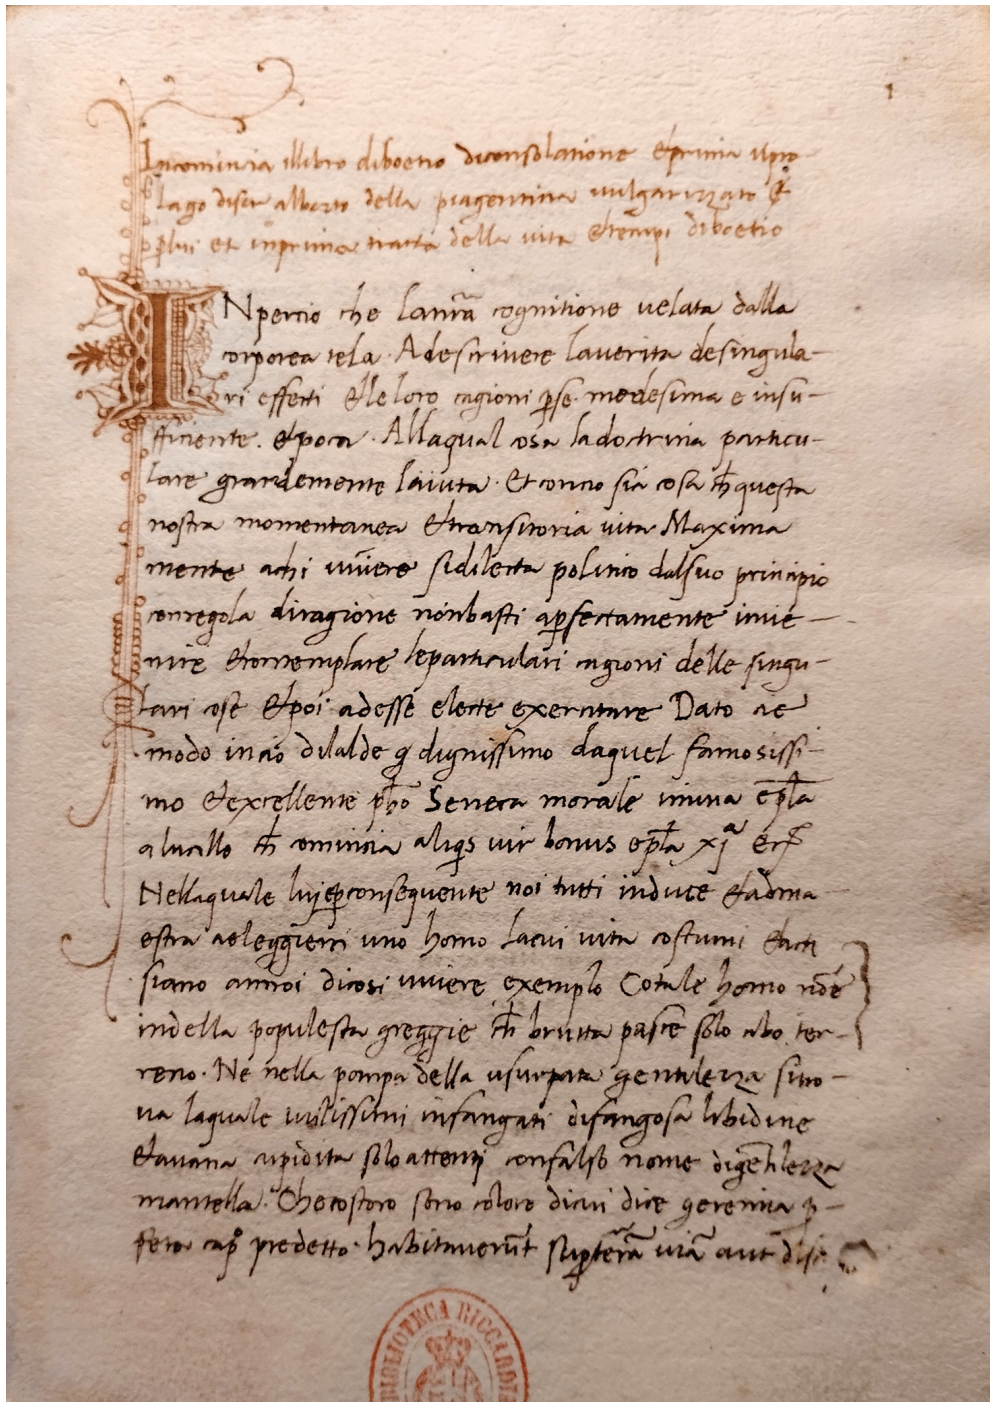 1
Incomincia illibro diboetio diconsolatione Et prima ilpro-
lago diser alberto della piagentina vulgarizzato Et
plui et inprima tracta della vita Etempi diboetio
INpercio che lanr̄a cognitione velata dalla
corporea tela · Adescrivere laverita desingula-
ri effecti Elle loro cagioni ꝑse medesima e insu-
fficiente . Et poca · Allaqual cosa la doctrina particu-
lare grandemente laiuta · Et concio sia cosa ch̄ questa
nostra momentanea Et transitoria vita Maxima
mente achi vivere sidilecta politico dalsuo principio
conregola diragione nonbasti aꝑfectamente inve-
nire Et contemplare leparticulari cagioni delle singu-
lari cose Et poi adesse electe exercitare Dato ce
modo in cio dilalde dignissimo daquel famosissi-
mo Et excellente ph̄o Seneca morale in una ep̄la
alucillo ch̄ comincia aliqis vir bonus ep̄la xjᵃ etc
Nellaquale lui Et ꝑconsequente noi tutti induce Et adma-
estra aeleggierci uno homo lacui vita costumi Et acti
siano annoi dicosi vivere exemplo Cotale homo nōe
indella populesca greggie ch̄ brutta pasce solo cibo ter-
reno · Ne nella pompa della usurpata gentilezza sitro-
va laquale vilissimi infangati difangosa libidine
Et avara cupidita solo attenti confalso nome digentilezza
mantella · Che costoro sono coloro dicui dice geremia ꝓ-
feta capᵒ predetto · habitaverūt suꝑ terrā viā aut disc
BIBLIOTECA RICCARDI